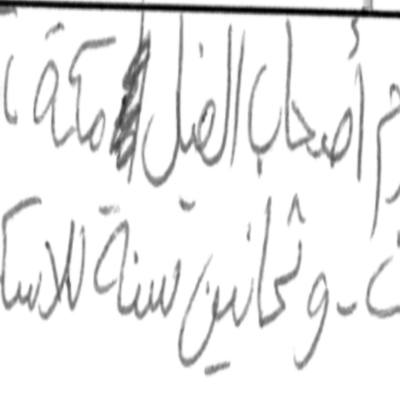 أصحاب الفيل مكة
وثمانين سنة للاسكـ